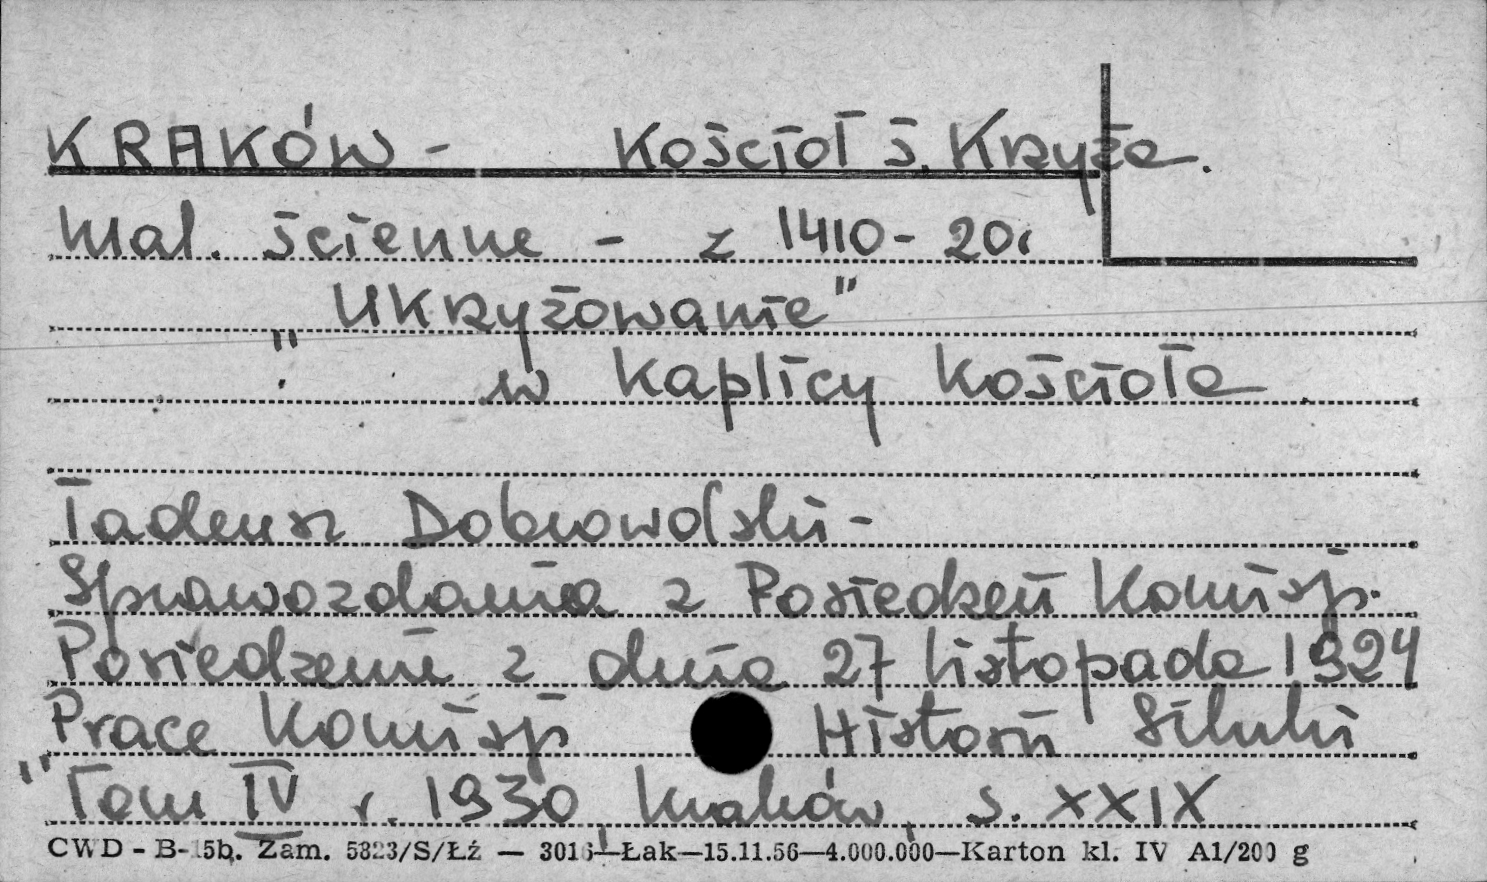 KRAKÓW - Kościoł ś. Krzyża.
Mal. ścienne - z 1410-20r
"Ukrzyżowanie"
w Kaplicy Kościoła
Tadeusz Dobrowolski -
Sprawozdania z Posiedzeń Komisji.
Posiedzenie z dnia 27 listopada 1924
Prace Komisji Historii Sztuki
"Tom IV r. 1930, Kraków, s. XXIX
CWD - B-15b. Zam. 5323/S/Łź — 3016—Łak—15.11.56—4.000.000—Karton kl. IV A1/200 g